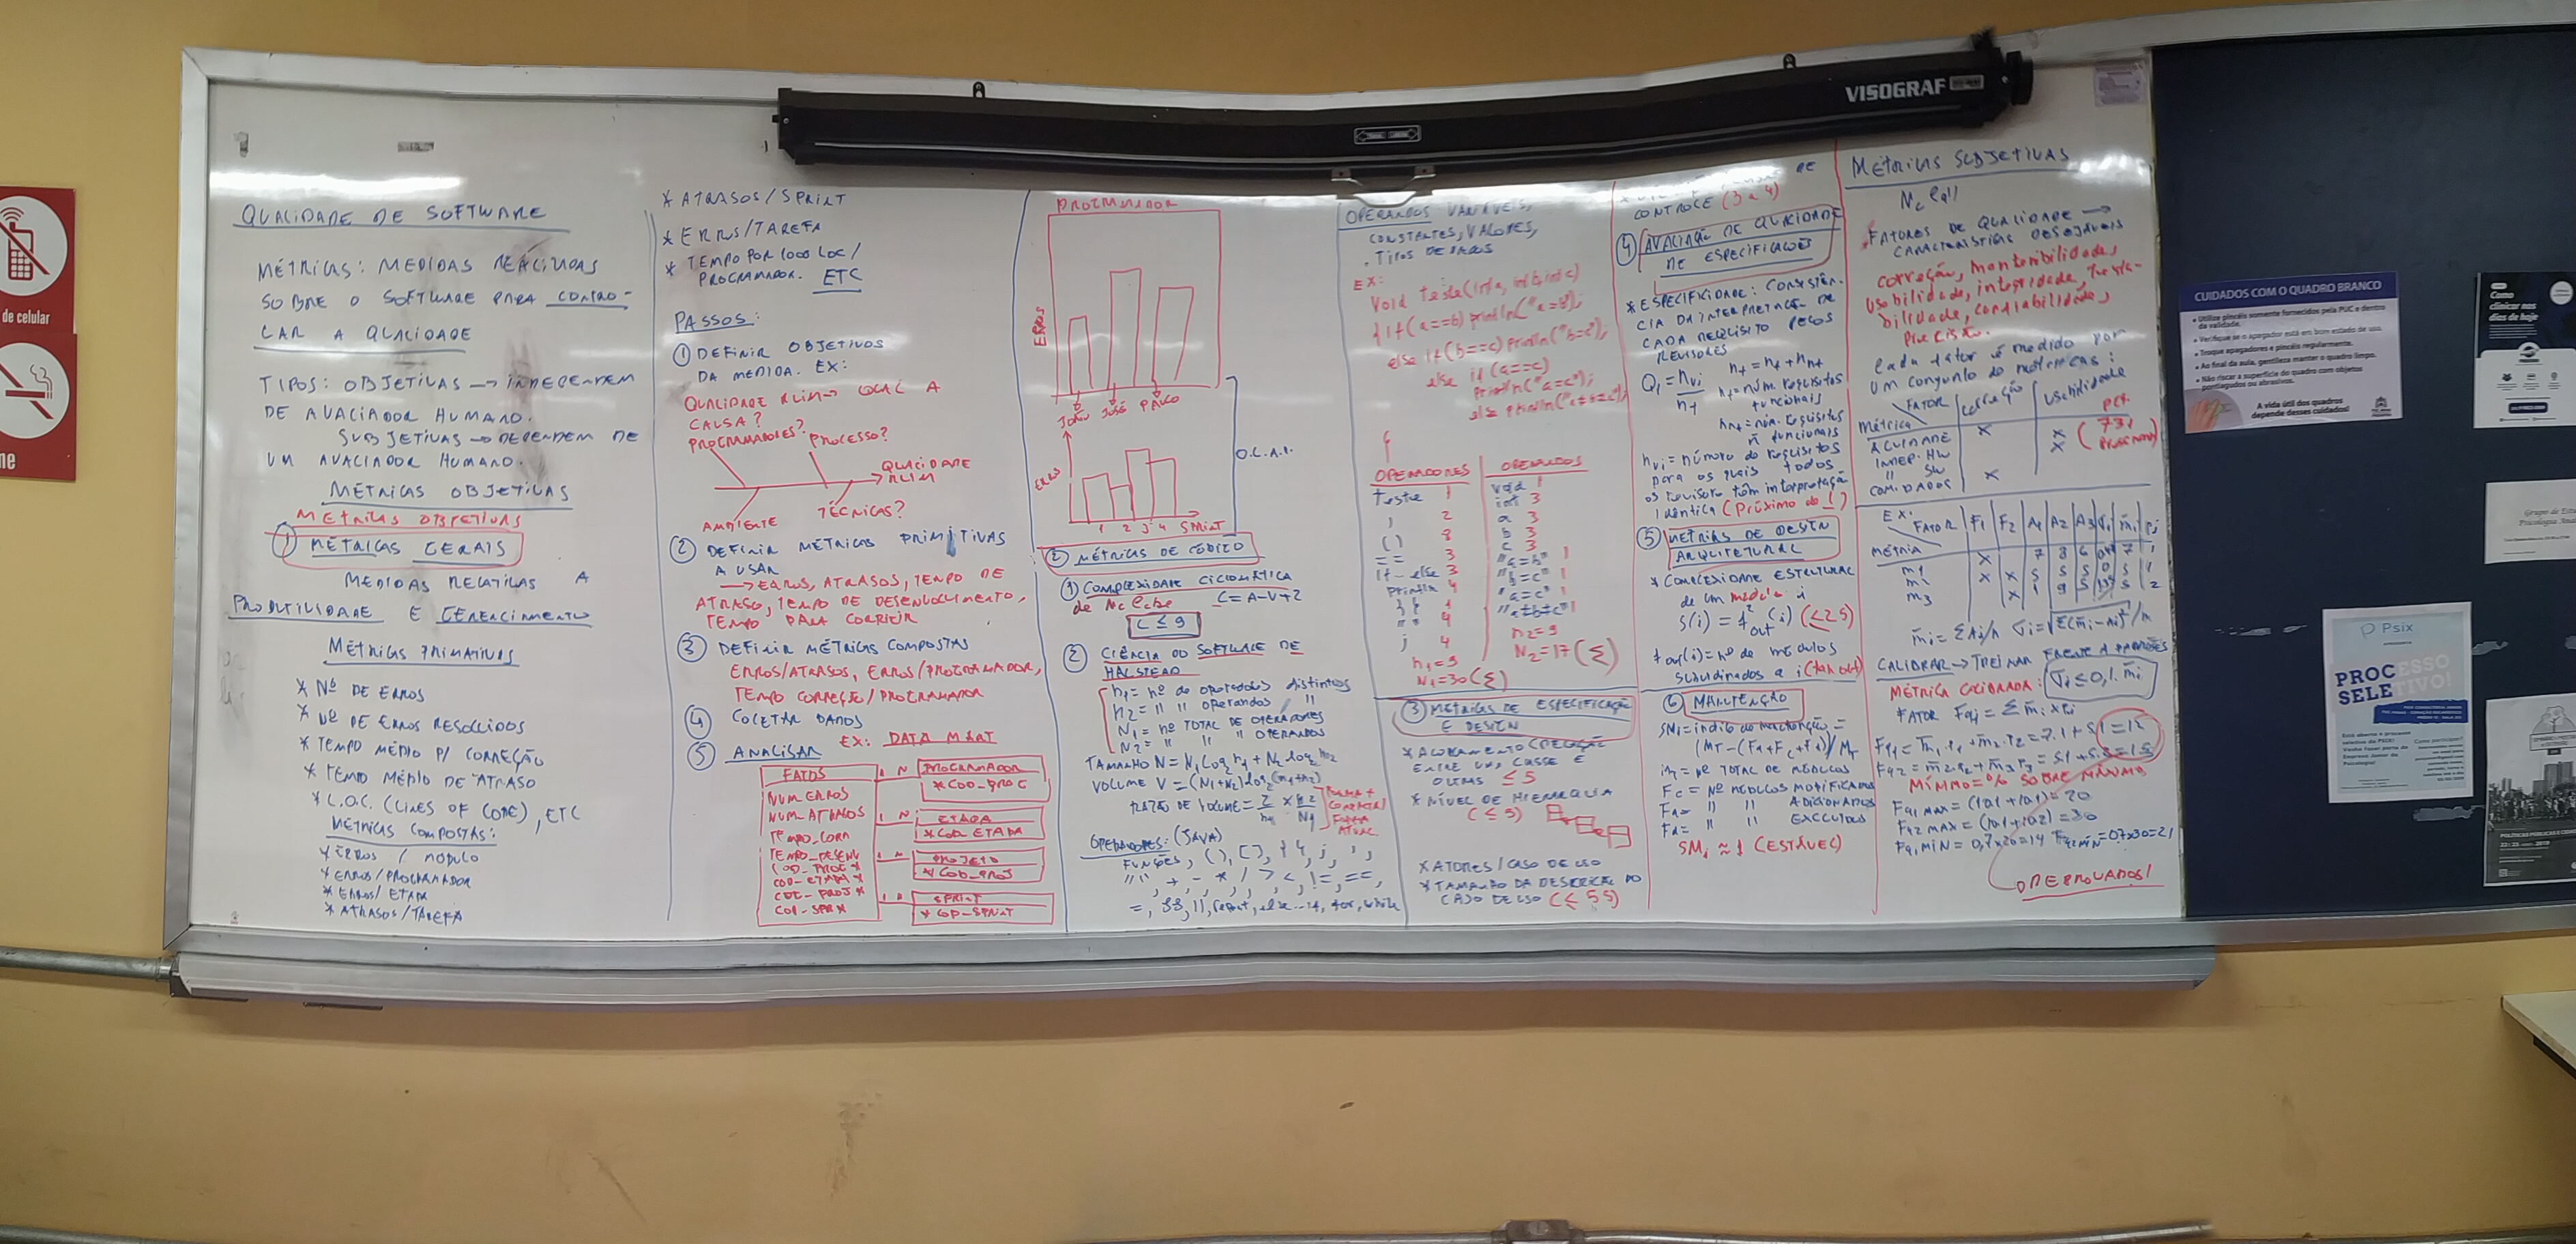 VISOGRAF
de celular
ne
QUALIDADE DE SOFTWARE
MÉTRICAS: MEDIDAS REALIZADAS
SOBRE O SOFTWARE PARA CONTRO-
LAR A QUALIDADE
TIPOS: OBJETIVAS → INDEPENDEM
DE AVALIADOR HUMANO.
SUBJETIVAS → DEPENDEM DE
UM AVALIADOR HUMANO.
MÉTRICAS OBJETIVAS
METRICAS OBJETIVAS
① MÉTRICAS GERAIS
MEDIDAS RELATIVAS A
PRODUTIVIDADE E GERENCIMENTO
MÉTRICAS PRIMITIVAS
* Nº DE ERROS
* Nº DE ERROS RESOLVIDOS
* TEMPO MÉDIO P/ CORREÇÃO
* TEMPO MÉDIO DE ATRASO
* L.O.C. (LINES OF CODE), ETC
MÉTRICAS COMPOSTAS:
* ERROS / MÓDULO
* ERROS/PROGRAMADOR
* ERROS/ ETAPA
* ATRASOS/TAREFA
* ATRASOS/SPRINT
* ERROS/TAREFA
* TEMPO POR 1000 LOC/
PROGRAMADOR. ETC
PASSOS:
① DEFINIR OBJETIVOS
DA MEDIDA. EX:
QUALIDADE RUIM → QUAL A
CAUSA?
PROGRAMADORES? PROCESSO?
QUALIDADE
RUIM
AMBIENTE TÉCNICAS?
② DEFINIR MÉTRICAS PRIMITIVAS
A USAR
→ ERROS, ATRASOS, TEMPO DE
ATRASO, TEMPO DE DESENVOLVIMENTO,
TEMPO PARA CORRIGIR
③ DEFINIR MÉTRICAS COMPOSTAS
ERROS/ATRASOS, ERROS/PROGRAMADOR,
TEMPO CORREÇÃO/PROGRAMADOR
④ COLETAR DADOS
⑤ ANALISAR EX: DATA MART
FATOS
NUM ERROS
NUM ATRASOS
TEMPO_CORR
TEMPO_DESENV
COD_PROG *
COD_ETAPA *
COD_PROJ *
COD_SPR *
1 N PROGRAMADOR
* COD_PROG
1 N ETAPA
* COD_ETAPA
1 N PROJETO
* COD_PROJ
1 N SPRINT
* COD_SPRINT
PROGRAMADOR
ERROS
JOÃO JOSÉ PAULO
ERROS
1 2 3 4 SPRINT
O.L.A.P.
② MÉTRICAS DE CÓDIGO
1) COMPLEXIDADE CICLOMÁTICA
de McCabe C = A-V+2
C ≤ 9
② CIÊNCIA DO SOFTWARE DE
HALSTEAD
n1 = nº de operadores distintos
n2 = " " operandos "
N1 = nº TOTAL DE OPERADORES
N2 = " " " OPERANDOS
TAMANHO N = N1 Log2 n1 + N2 log2 n2
VOLUME V = (N1+N2) log2(n1+n2)
RAZÃO DE VOLUME = 2/n1 × n2/N2
FORMA +
COMPACTA/
FORMA
ATUAL
OPERADORES: (JAVA)
FUNÇÕES, ( ), [ ], { }, ; ,
OPERANDOS VARIÁVEIS,
CONSTANTES, VALORES,
TIPOS DE DADOS
EX:
Void teste(int a, int b, int c)
{ if(a==b) println("a=b");
else if(b==c) println("b=c");
else if(a==c)
println("a=c");
else println("a≠b≠c");
OPERADORES
OPERANDOS
teste 1
, 2
== 3
if-else 3
println 4
" " 4
; 4
n1=9
N1=30(Σ)
void 1
int 3
a 3
b 3
c 3
"a=b" 1
"b=c" 1
"a=c" 1
"a≠b≠c" 1
n2=9
N2=17(Σ)
③ METRICAS DE ESPECIFICAÇÃO
E DESIGN
* ACOPLAMENTO (RELAÇÃO
ENTRE UMA CLASSE E
OUTRAS ≤ 5
* NÍVEL DE HIERARQUIA
(≤ 5)
* ATORES / CASO DE USO
* TAMANHO DA DESCRIÇÃO DO
CASO DE USO
DE
CONTROLE (3 a 4)
④ AVALIAÇÃO DE QUALIDADE
DE ESPECIFICAÇÕES
* ESPECIFICIDADE: CONSISTÊN-
CIA DA INTERPRETAÇÃO DE
CADA REQUISITO PELOS
REVISORES
Q1 = nvi/nt nt = nf + nnf
nf = núm. requisitos
funcionais
nnf = núm. requisitos
ñ funcionais
nvi = número de requisitos
para os quais todos
os revisores têm interpretação
idêntica (Próximo de 1)
⑤ MÉTRICAS DE DESIGN
ARQUITETURAL
* COMPLEXIDADE ESTRUTURAL
de um módulo i
S(i) = f²out(i) (≤25)
fout(i) = nº de módulos
subordinados a i (fan out)
⑥ MANUTENÇÃO
SMI = índice de manutenção =
(MT - (Fa + Fc + Fd))/MT
MT = nº TOTAL DE MÓDULOS
Fc = Nº MÓDULOS MODIFICADOS
Fa = " " ADICIONADOS
Fd = " " EXCLUÍDOS
SMI ≈ 1 (ESTÁVEL)
MÉTRICAS SUBJETIVAS
Mc Call
FATORES DE QUALIDADE →
CARACTERÍSTICAS DESEJÁVEIS
correção, mantenibilidade,
usabilidade, integridade, testa-
bilidade, confiabilidade,
precisão.
Cada fator é medido por
um conjunto de métricas:
FATOR Correção Usabilidade
Métrica
ACUIDADE X X
INDEP. HW X
" SW
COM. DADOS X
EX:
FATOR F1 F2 A1 A2 A3
MÉTRICA
m1 X 7 8 6
m2 X X 5 5 5
m3 X 1 9 5
m̄i = ΣAi/n σi = √Σ(m̄i-Ai)²/n
CALIBRAR → TREINAR FRENTE A PADRÕES
MÉTRICA CALIBRADA: σi ≤ 0,1.m̄i
FATOR Fqj = Σ m̄i × pi
Fq1 = m̄1.p1 + m̄2.p2 = 7.1 + 5.1 = 12
Fq2 = m̄2.p2 + m̄3.p3 = 5.1 + 5.2 = 15
MÍNIMO = % SOBRE MÁXIMO
Fq1 MAX = (10.1 + 10.1) = 20
Fq2 MAX = (10.1 + 10.2) = 30
Fq1 MIN = 0,7x20 = 14 Fq2 MIN = 0,7x30 = 21
REPROVADOS!
CUIDADOS COM O QUADRO BRANCO
• Utilize pincéis somente fornecidos pela PUC e dentro
da validade.
• Verifique se o apagador está em bom estado de uso.
• Troque apagadores e pincéis regularmente.
• Ao final da aula, gentileza manter o quadro limpo.
• Não riscar a superfície do quadro com objetos
pontiagudos ou abrasivos.
A vida útil dos quadros
depende desses cuidados!
Como
clinicar nos
dias de hoje
Psix
PROCESSO
SELETIVO!